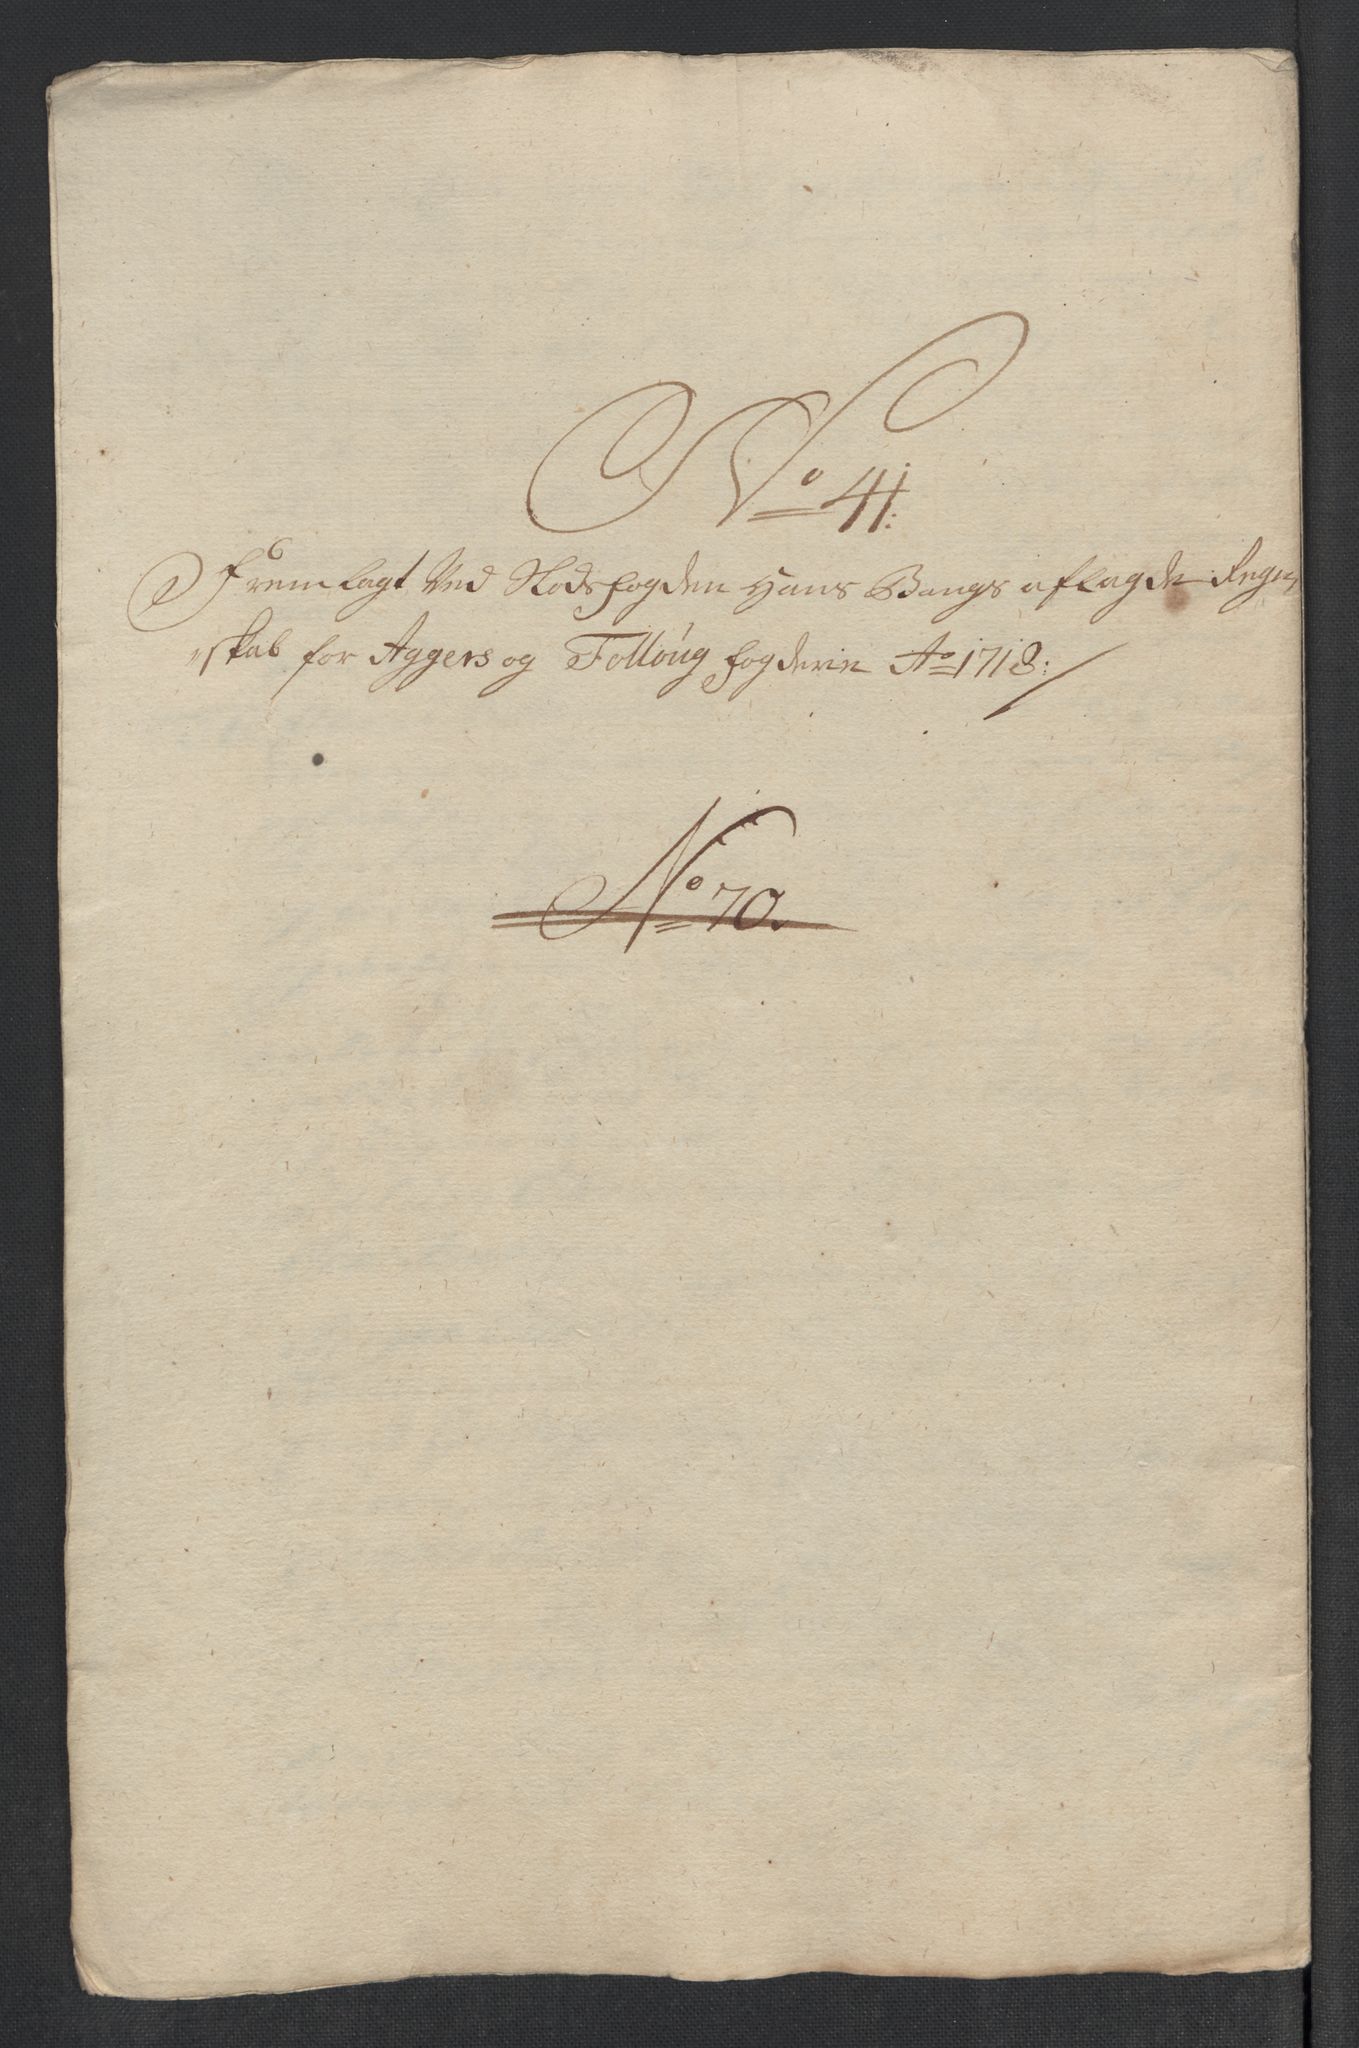 No 41:
Fremlagt Ved Slodsfogden Hans Bangs aflagde Regen
skab for Aggers og Follöug fogderie Ao 1718:
No 70.